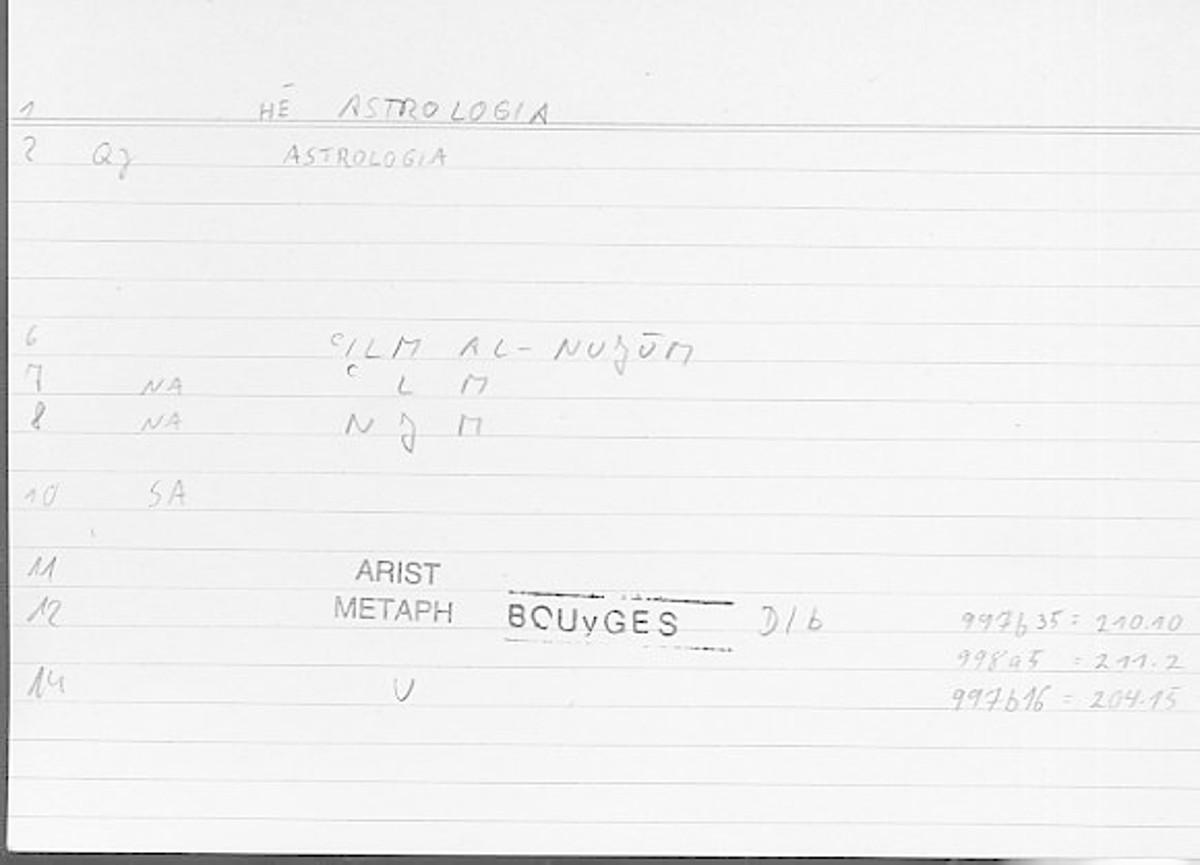 1 HĒ ASTROLOGIA
2 Qj ASTROLOGIA
6 ʿILM AL-NUJŪM
7 NA ʿ L M
8 NA N J M
10 SA
11 ARIST
12 METAPH BOUyGES D/b 997b35 = 210.10
998a5 = 211.2
14 V 997b16 = 204.15